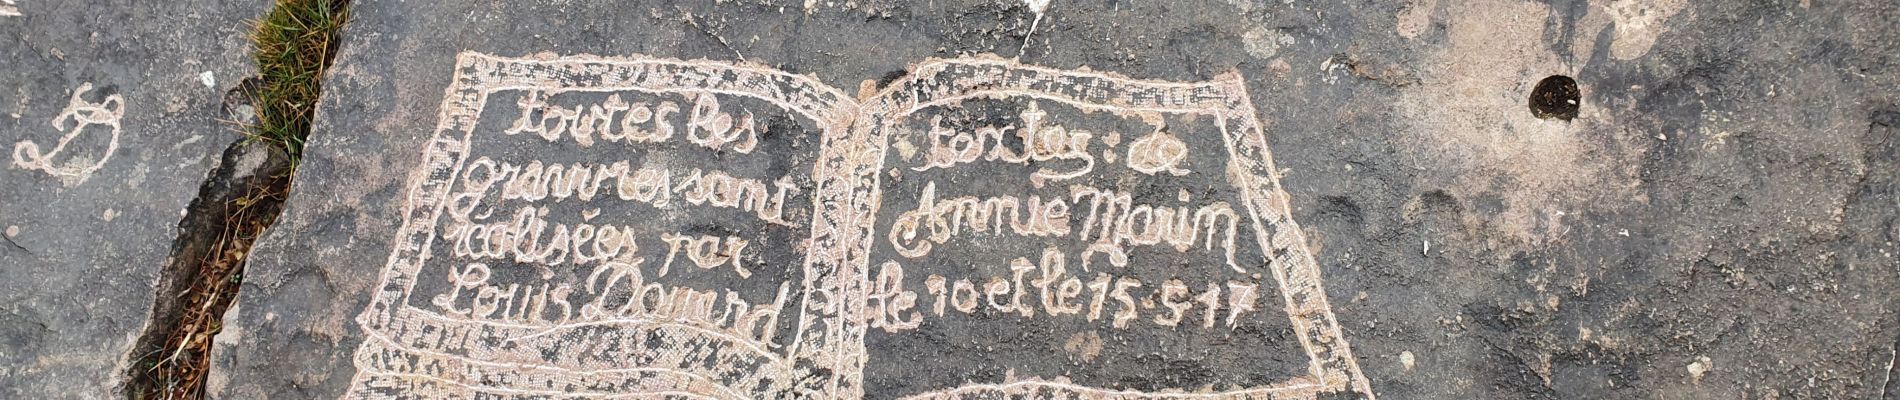 toutes les
gravures sont
réalisées par
Louis Douard
textes : de
Annie Marin
le 10 et le 15-5-17